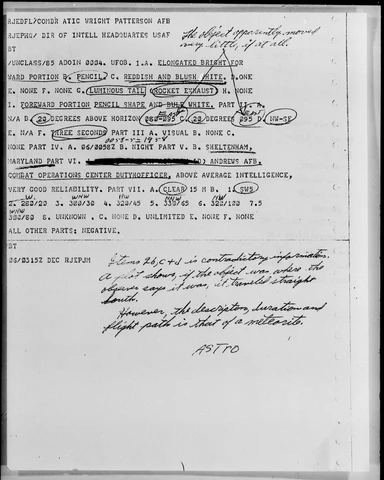 RJEDFL/COMDR ATIC WRIGHT PATTERSON AFB
RJEPHQ/ DIR OF INTELL HEADQUARTES USAF
The object apparently moved
very little, if at all.
BT
/UNCLASS/85 ADOIN 0084. UFOB. I.A. ELONGATED BRIGHT FOR
WARD PORTION B. PENCIL C. REDDISH AND BLUSH WHITE. D.ONE
E. NONE F. NONE G. LUMINOUS TAIL (ROCKET EXHAUST) H.NONE
I. FOREWARD PORTION PENCIL SHAPE AND BULE WHITE. PART II. A.
N/A B. 20 DEGREES ABOVE HORIZON 280-295 C. 20 DEGREES 295 D. NW-SE
E. N/A F. THREE SECONDS PART III A. VISUAL B. NONE C.
NONE PART IV. A. 06/0058Z B. NIGHT PART V. B. SHELTENHAM,
MARYLAND PART VI. ANDREWS AFB.
COMBAT OPERATIONS CENTER DUTYOFFICER. ABOVE AVERAGE INTELLIGENCE,
VERY GOOD RELIABILITY. PART VII. A. CLEAR 15 M B. 1. SWS
WNW NW NNW NW
2. 280/20 3. 300/30 4. 320/45 5. 330/65 6. 320/100 7.5
WNW
300/80 8. UNKNOWN . C. NONE D. UNLIMITED E. NONE F. NONE
ALL OTHER PARTS: NEGATIVE.
BT
06/0315Z DEC RJEPJM
Items 2b, c + d is contradictory information.
A plot shows, if the object was where the
observer says it was, it traveled straight
south.
However, the description, duration and
flight path is that of a meteorite.
ASTRO